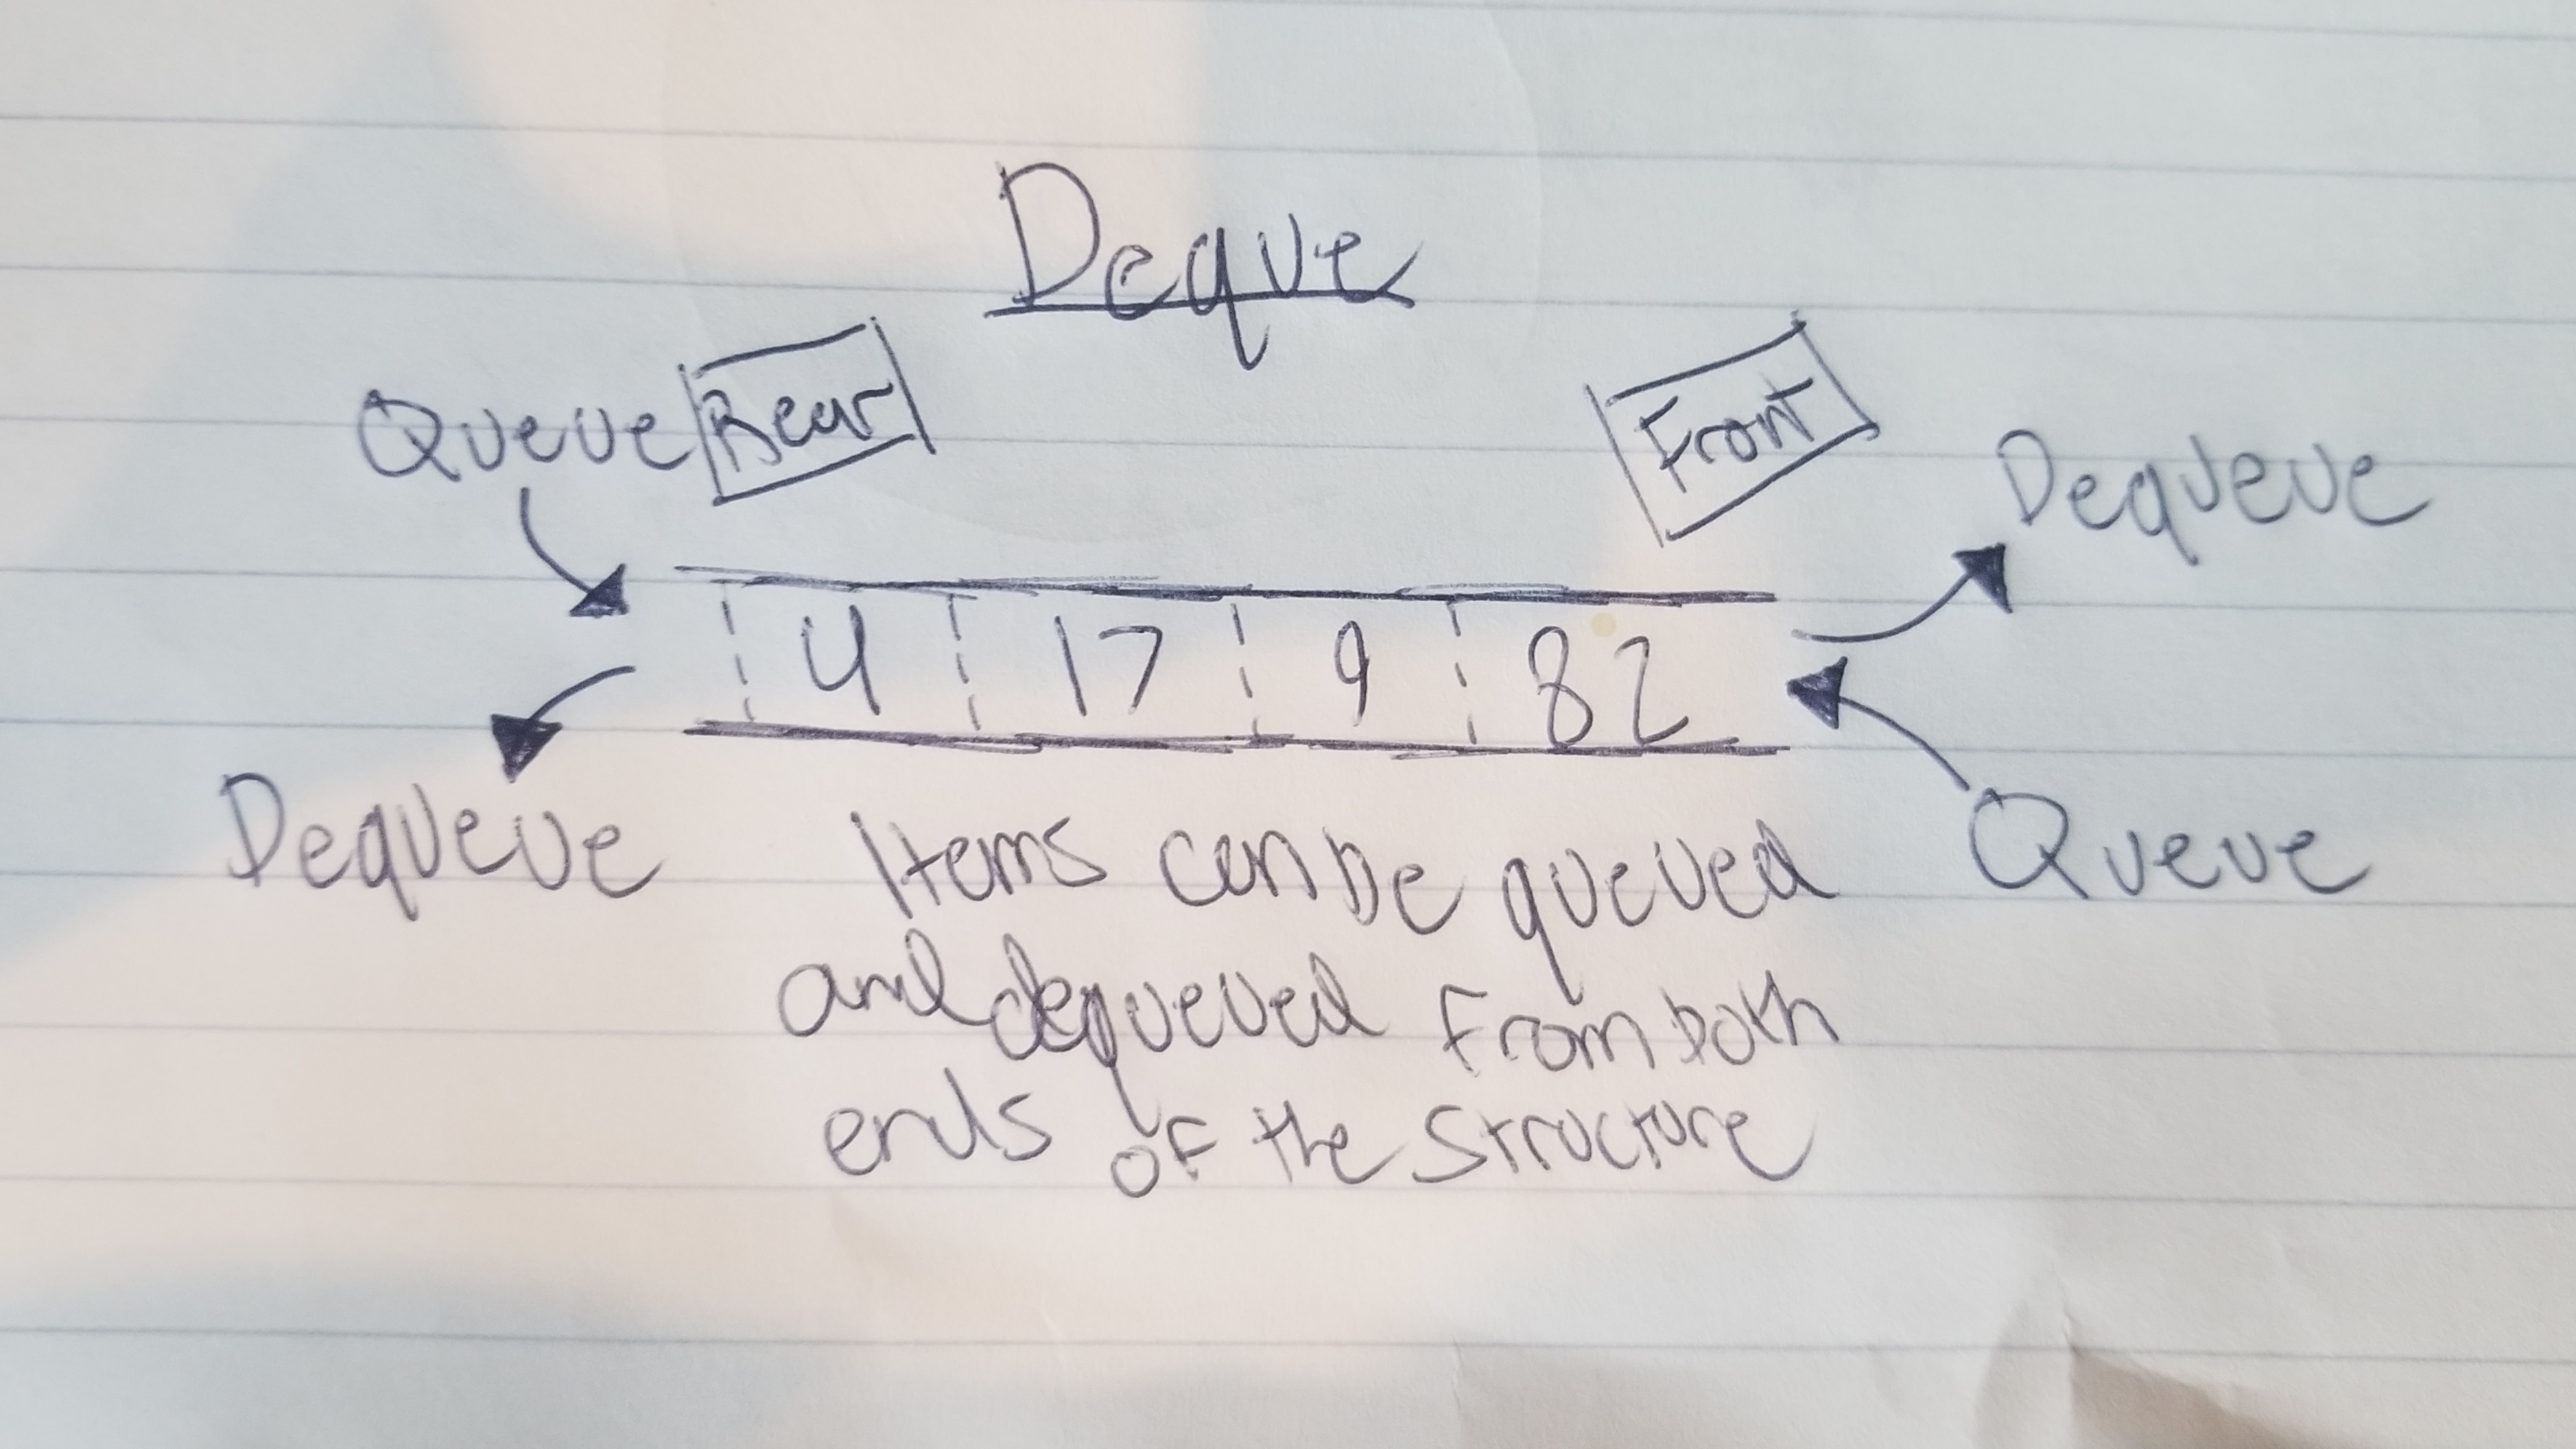 Deque
Queue Rear
Front
Dequeue
4 17 9 82
Dequeue
Queue
Items can be queued
and dequeued From both
ends of the structure